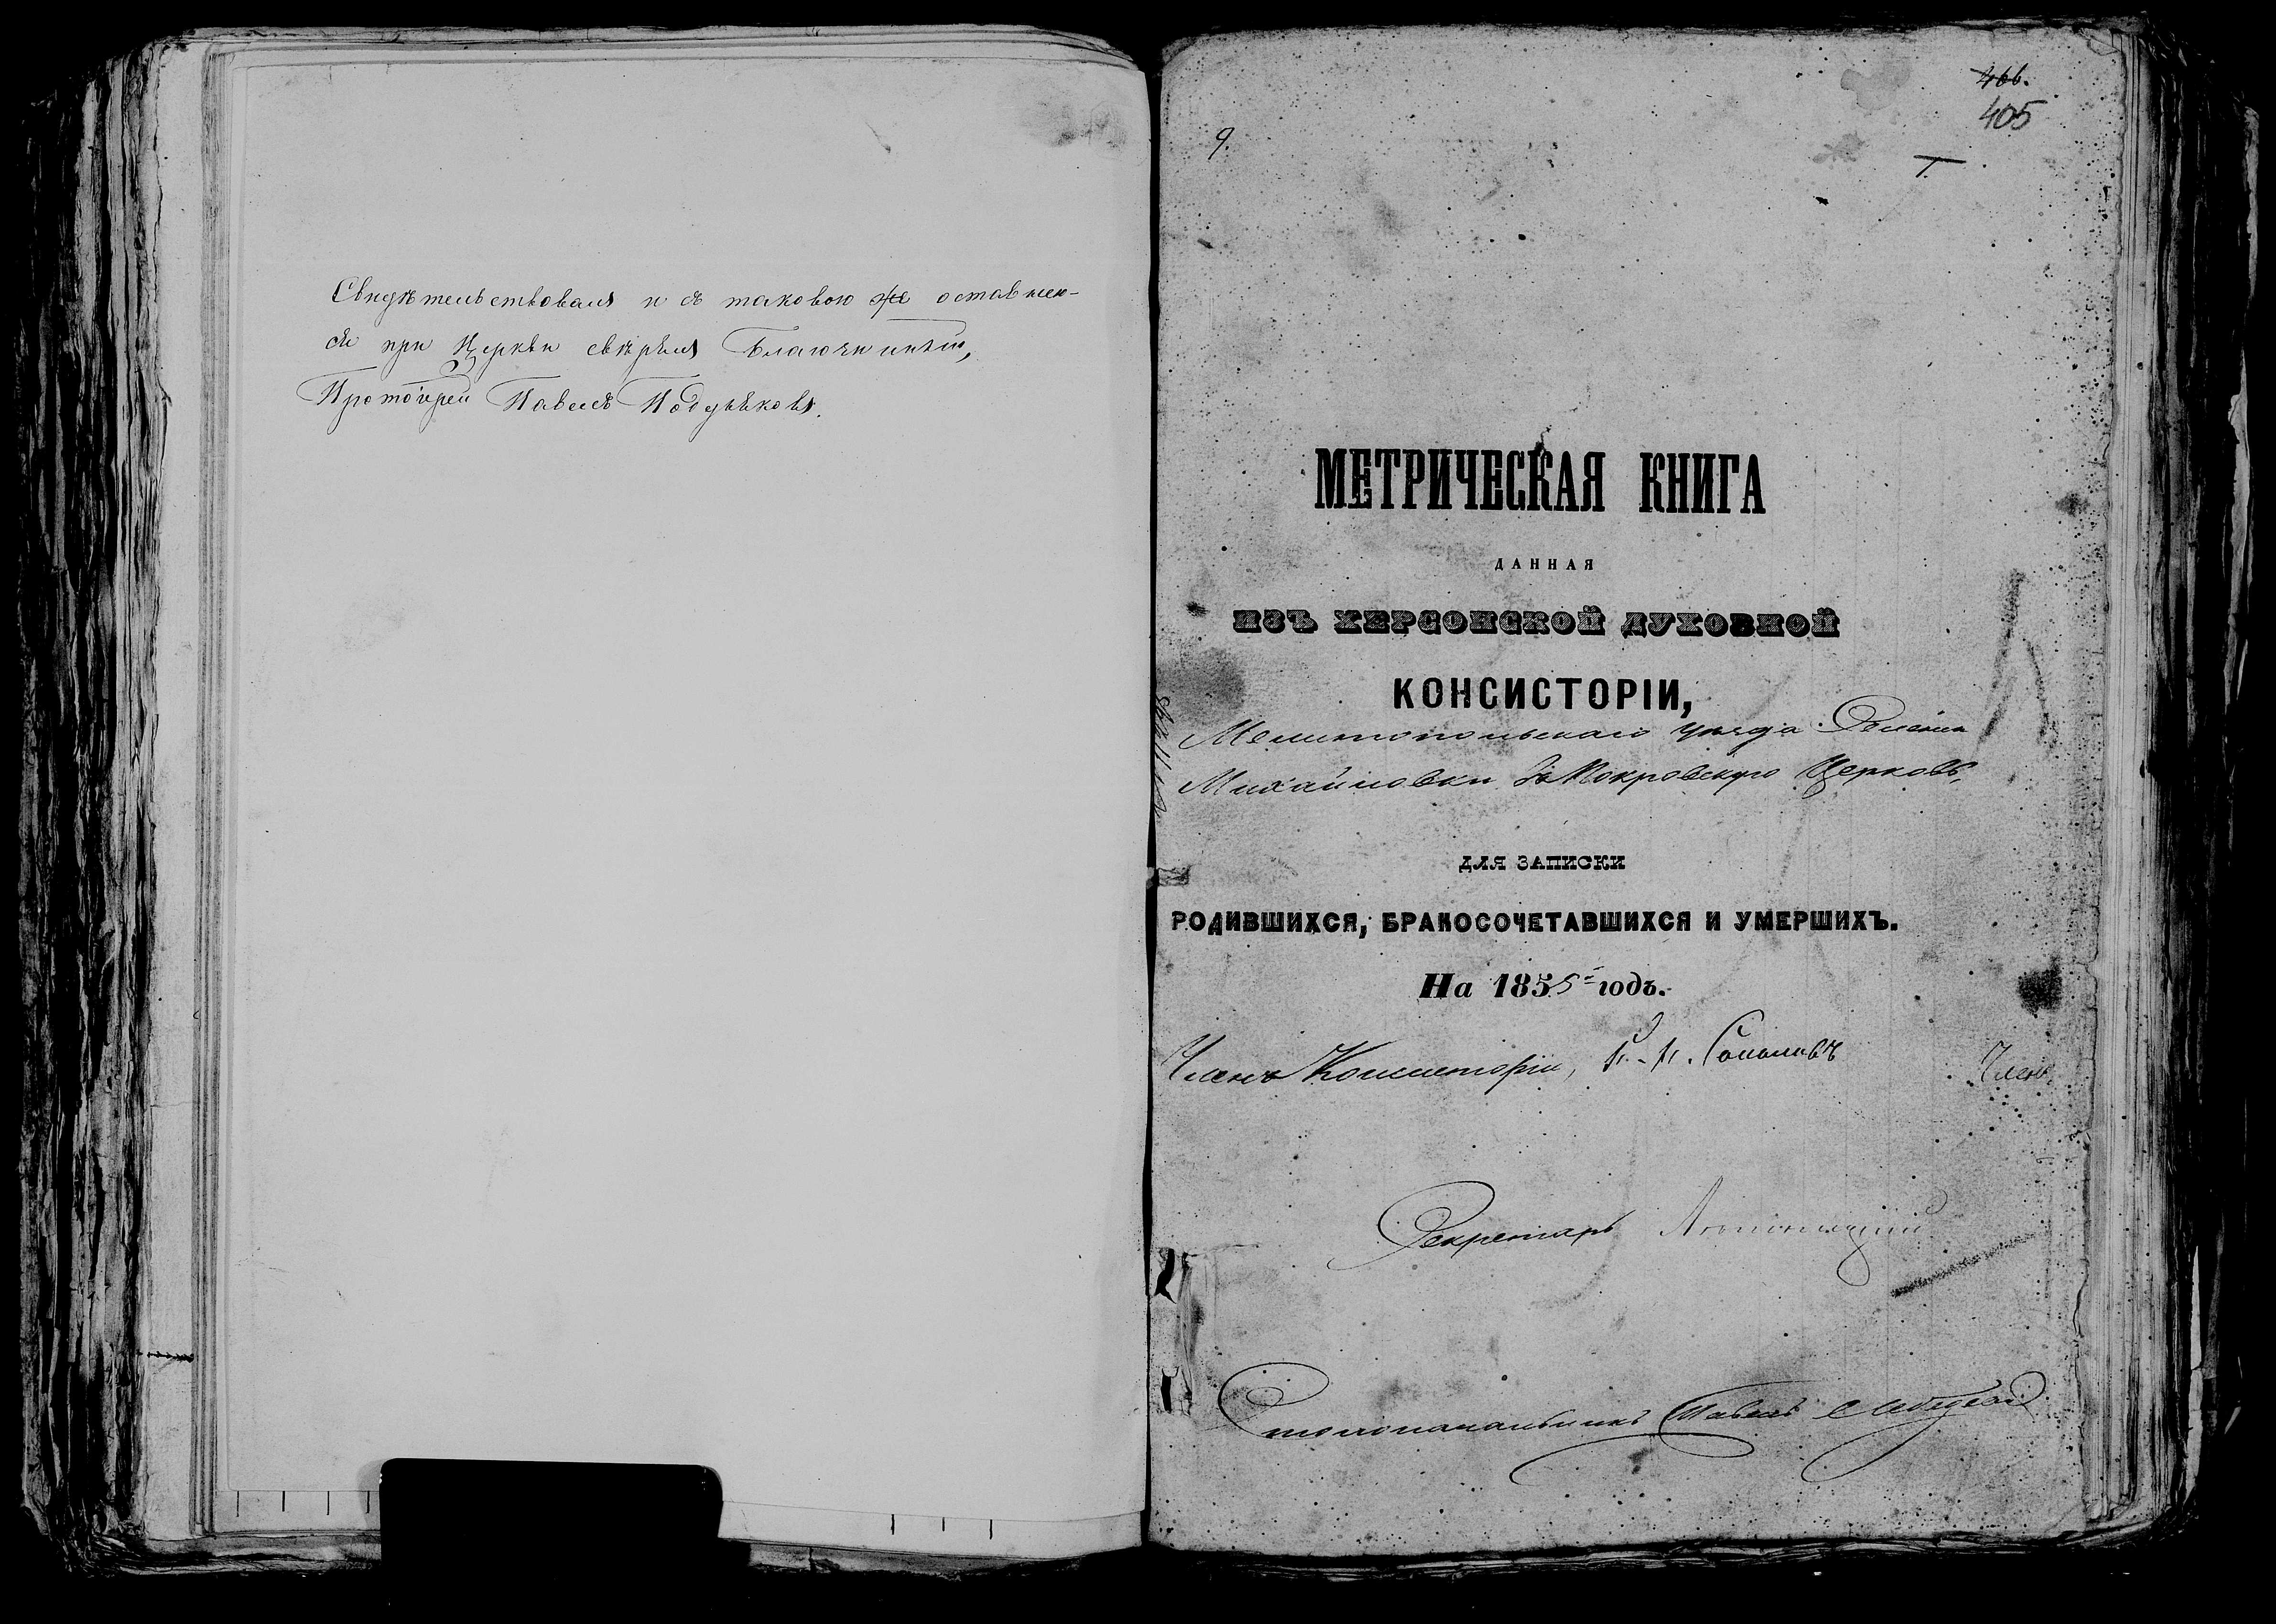 Свидѣтельствовалъ и съ таковою же оставшею-
ся при Церкви свѣрялъ Благочинный,
Протоіерей Павелъ
466.
405
9.
1.
МЕТРИЧЕСКАЯ КНИГА
ДАННАЯ
ИЗЪ ХЕРСОНСКОЙ ДУХОВНОЙ
КОНСИСТОРІИ,
Мелитопольскаго уѣзда Селенія
Михайловки въ Покровскую Церковь,
ДЛЯ ЗАПИСКИ
РОДИВШИХСЯ, БРАКОСОЧЕТАВШИХСЯ И УМЕРШИХЪ.
На 1855 годъ.
Членъ Консисторіи,
Членъ
Секретарь
Столоначальникъ Павелъ